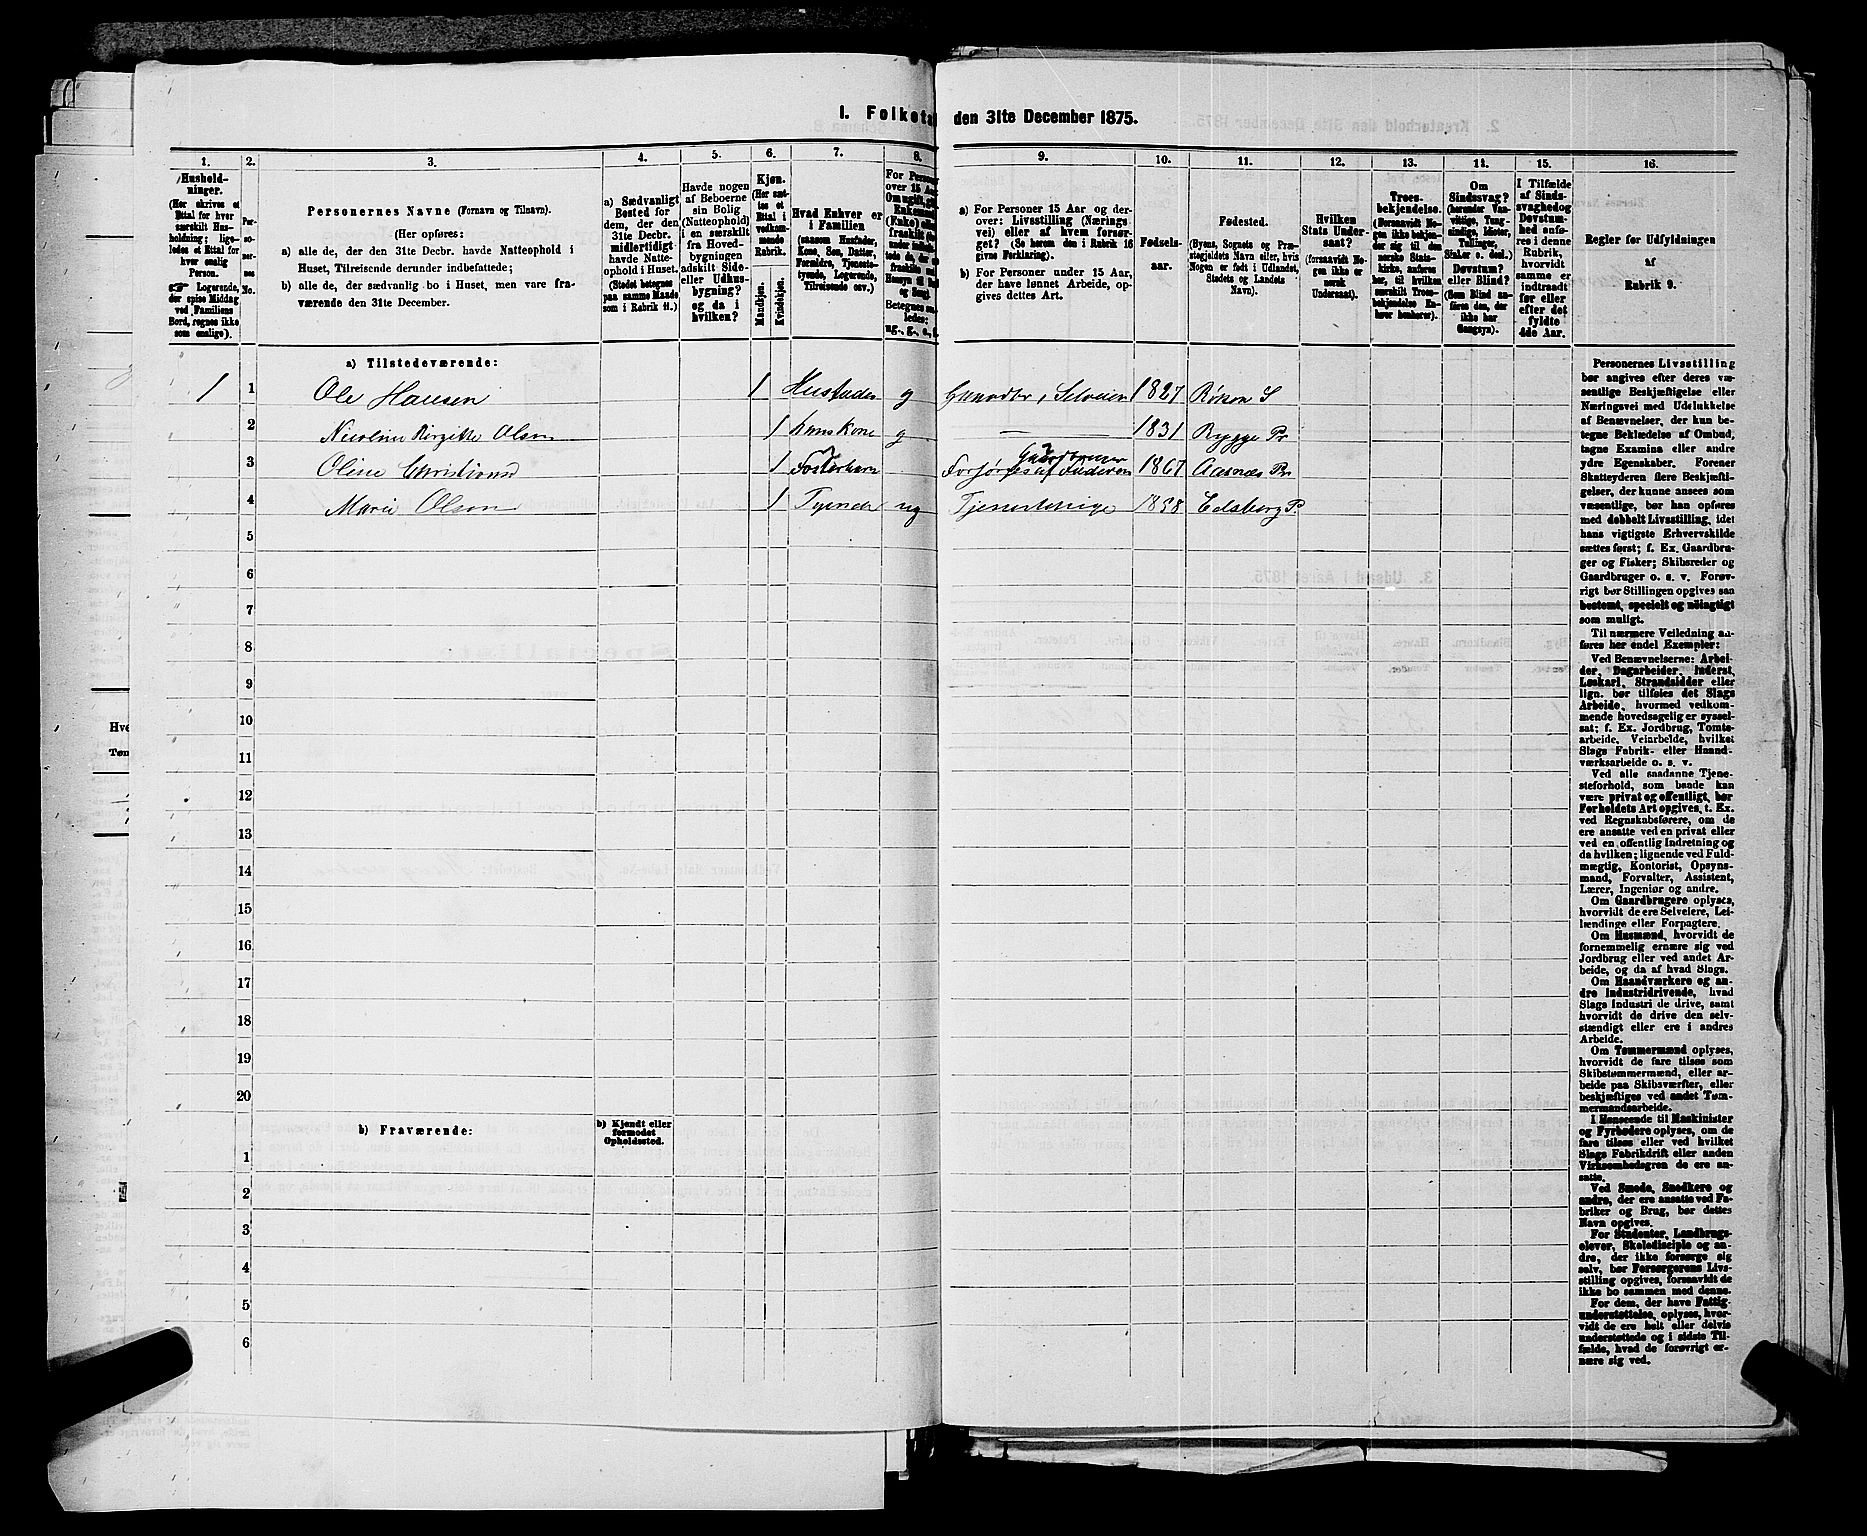 I. Folketal den 31te December 1875.
1. 2. 3. 4. 5. 6. 7. 8. 9. 10. 11. 12. 13. 14. 15. 16.
Husholdninger.
(Her skrives et
Ettal for hver
særskilt Husholdning;
ligeledes et Ettal for
hver enslig
Person.
Logerende,
der spise Middag
ved Familiens
Bord, regnes ikke
som enslige).
Personernes No.
Personernes Navne (Fornavn og Tilnavn).
(Her opføres:
a) alle de, der den 31te Decbr. havde Natteophold i
Huset, Tilreisende derunder indbefattede;
b) alle de, der sædvanlig bo i Huset, men vare fraværende
den 31te December.
a) Sædvanligt
Bosted for
dem, der den
31te Decbr.
midlertidigt
havde Natteophold
i Huset.
(Stedet betegnes
paa samme Maade
som i Rubrik 11.)
Havde nogen
af Beboerne
sin Bolig
(Natteophold)
i en særskilt
fra Hovedbygningen
adskilt Side-
eller Udhusbygning?
og da i
hvilken?
Kjøn.
(Her sættes
et
Ettal i
vedkommende
Rubrik.
Mandkjøn.
Kvindekjøn.
Hvad Enhver er
i Familien
(saasom Husfader,
Kone, Søn, Datter,
Forældre, Tjenestetyende,
Logerende,
Tilreisende osv.)
For Personer
over 15 Aar
Om ugift, gift,
Enkemand
(Enke) eller
fraskilt
a) For Personer 15 Aar og derover:
Livsstilling (Næringsvei)
eller af hvem forsørget?
(Se herom den i Rubrik 16
givne Forklaring).
b) For Personer under 15 Aar,
der have lønnet Arbeide, opgives
dettes Art.
Fødselsaar.
Fødested.
(Byens, Sognets og Præstegjeldets
Navn eller, hvis
Nogen er født i Udlandet,
Stedets og Landets
Navn).
Hvilken
Stats Undersaat?
(forsaavidt Nogen
ikke er
norsk
Undersaat).
Troesbekjendelse.
(Forsaavidt Nogen
ikke bekjender
sig til den
norske Statskirke,
anføres
her, til hvilken
særskilt Troesbekjendelse
Enhver henhører).
Om
Sindssvag?
(herunder Vanvittige,
Tungsindige,
Idioter,
Tullinger,
Sinker o. desl.)
Døvstum?
eller Blind?
(Som Blind anføres
den, der
ikke har
Gangsyn).
I Tilfælde
af Sindssvaghed
og
Døvstumhed
anføres
i denne
Rubrik,
hvorvidt
samme er
indtraadt
før eller
efter det
fyldte
4de Aar.
Regler for Udfyldningen
af
Rubrik 9.
a) Tilstedeværende:
1 1 Ole Hansen 1 Husfader g Gaardbr, Selveier 1827 S
2 Nicoline Birgitte Olsen 1 hans Kone g — 1831 Rygge Pr
Gaardbruger
3 Oline Christiansd 1 Fosterbarn Forsørges af Faderen 1867 Pr
4 Marie Olsen 1 Tyende ug Tjenestepige 1858 Edsberg P.
5
6
7
8
9
10
11
12
13
14
15
16
17
18
19
20
b) Fraværende:
b) Kjendt eller
formodet
Opholdssted.
1
2
3
4
5
6
Personernes Livsstilling
bør angives efter deres væsentlige
Beskjæftigelse eller
Næringsvei med Udelukkelse
af Benævnelser, der kun betegne
Beklædelse af Ombud,
tagne Examina eller andre
ydre Egenskaber. Forener
Skatteyderen flere Beskjæftigelser,
der kunne ansees som
væsentlige, bør han opføres
med dobbelt Livsstilling, idet
hans vigtigste Erhvervskilde
sættes først; f. Ex. Gaardbruger
og Fisker; Skibsreder og
Gaardbruger o. s. v. Forøvrigt
bør Stillingen opgives saa
bestemt, specielt og nöiagtigt
som muligt.
Til nærmere Veiledning anføres
her endel Exempler:
Ved Benævnelserne: Arbeider,
Dagarbeider, Inderst,
Løskarl, Strandsidder eller
lign. bør tilføies det Slags
Arbeide, hvormed vedkommende
hovedsagelig er sysselsat;
f. Ex. Jordbrug, Tomtearbeide,
Veiarbeide, hvilket
Slags Fabrik- eller Haandværksarbeide
o. s. v.
Ved alle saadanne Tjenesteforhold,
som baade kan
være privat og offentligt, bør
Forholdets Art opgives, t. Ex.
ved Regnskabsførere, om de
ere ansatte ved en privat eller
ved en offentlig Indretning og
da hvilken; lignende ved Fuldmægtig,
Kontorist, Opsynsmand,
Forvalter, Assistent,
Lærer, Ingeniør og andre.
Om Gaardbrugere oplyses,
hvorvidt de ere Selveiere, Leilændinge
eller Forpagtere.
Om Husmænd, hvorvidt de
fornemmelig ernære sig ved
Jordbrug eller ved andet Arbeide,
og da af hvad Slags.
Om Haandværkere og andre
Industridrivende, hvad
Slags Industri de drive, samt
hvorvidt de drive den selvstændigt
eller ere i andres
Arbeide.
Om Tømmermænd oplyses,
hvorvidt de fare tilsøs som
Skibstømmermænd, eller arbeide
paa Skibsværfter, eller
beskjæftiges ved andet Tømmermandsarbeide.
I Henseende til Maskinister
og Fyrbødere oplyses, om de
fare tilsøs eller ved hvilket
Slags Fabrikdrift eller anden
Virksomhedsgren de ere ansatte.
Ved Smede, Snedkere og
andre, der ere ansatte ved Fabriker
og Brug, bør dettes
Navn opgives.
For Studenter, Landbrugselever,
Skoledisciple og andre,
der ikke forsørge sig
selv, bør Forsørgerens Livsstilling
opgives, forsaavidt de
ikke bo sammen med denne.
For dem, der have Fattigunderstøttelse,
oplyses, hvorvidt
de ere helt eller delvis
understøttede og i sidste Tilfælde,
hvad de forøvrigt ernære
sig ved.